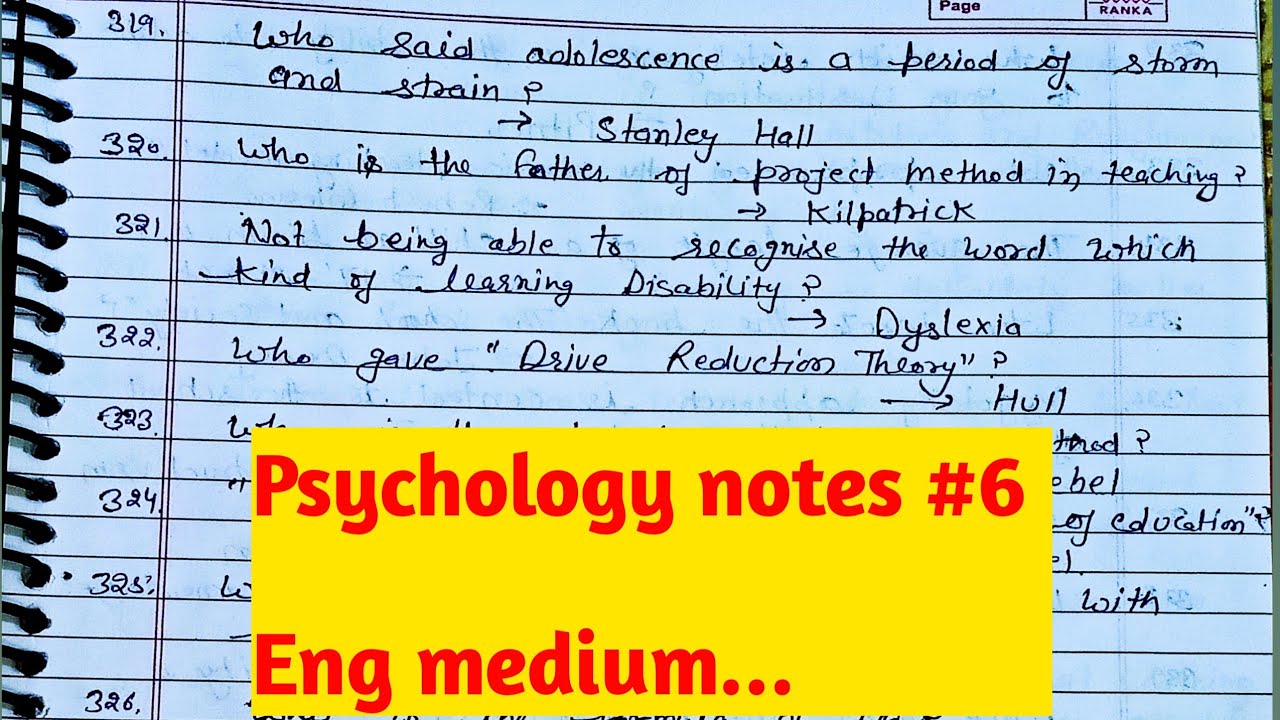 Page
RANKA
319. Who said adolescence is a period of storm
and strain?
→ Stanley Hall
320. Who is the father of project method in teaching?
→ Kilpatrick
321. Not being able to recognise the word which
kind of learning Disability?
→ Dyslexia
322. Who gave "Drive Reduction Theory"?
→ Hull
323.
324.
of education"?
325. with
326.
Psychology notes #6
Eng medium...